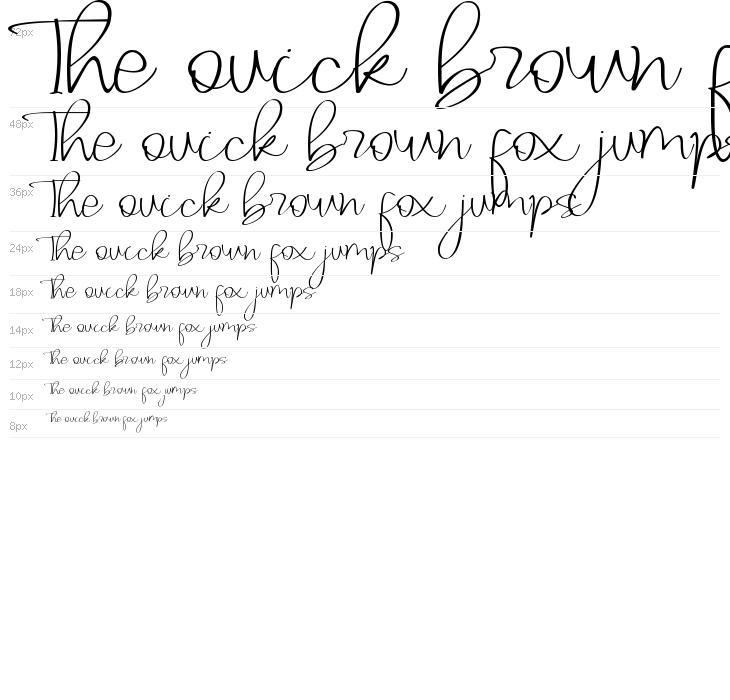 72px The ouick brown f
48px The ouick brown fox jumps
36px The ouick brown fox jumps
24px The ouick brown fox jumps
18px The ouick brown fox jumps
14px The ouick brown fox jumps
12px The ouick brown fox jumps
10px The ouick brown fox jumps
8px The ouick brown fox jumps